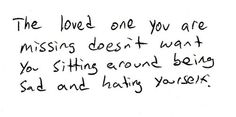 The loved one you are
missing doesn't want
you sitting around being
sad and hating yourself.